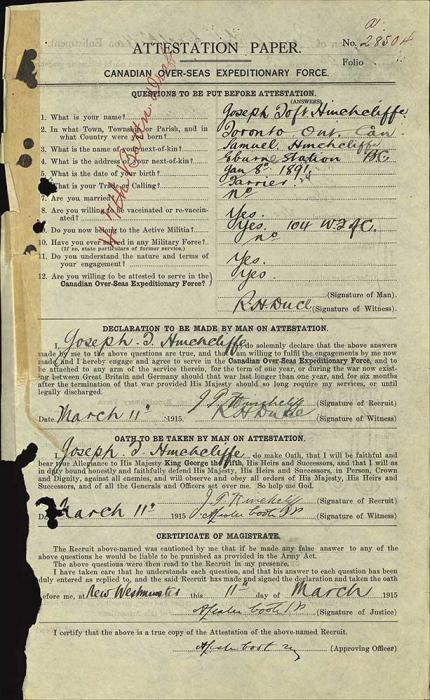 ATTESTATION PAPER.
No. 28504
Folio
CANADIAN OVER-SEAS EXPEDITIONARY FORCE.
QUESTIONS TO BE PUT BEFORE ATTESTATION.
(ANSWERS)
1. What is your name? Joseph Toft Hinchcliffe
2. In what Town, Township or Parish, and in
what Country were you born? Toronto Ont. Can.
3. What is the name of your next-of-kin? Samuel Hinchcliffe
4. What is the address of your next-of-kin? Eburne Station B.C.
5. What is the date of your birth? Jan 8th 1891
6. What is your Trade or Calling? Farrier
7. Are you married? no
8. Are you willing to be vaccinated or re-vaccin-
ated? Yes.
9. Do you now belong to the Active Militia? Yes. 104 W.F.of C.
10. Have you ever served in any Military Force? no
(If so, state particulars of former service.)
11. Do you understand the nature and terms of
your engagement? Yes.
12. Are you willing to be attested to serve in the
Canadian Over-Seas Expeditionary Force? Yes.
(Signature of Man).
R.H. (Signature of Witness).
DECLARATION TO BE MADE BY MAN ON ATTESTATION.
I, Joseph T. Hinchcliffe, do solemnly declare that the above answers
made by me to the above questions are true, and that I am willing to fulfil the engagements by me now
made, and I hereby engage and agree to serve in the Canadian Over-Seas Expeditionary Force, and to
be attached to any arm of the service therein, for the term of one year, or during the war now exist-
ing between Great Britain and Germany should that war last longer than one year, and for six months
after the termination of that war provided His Majesty should so long require my services, or until
legally discharged.
J.T. Hinchcliffe (Signature of Recruit)
Date March 11th 1915. R.H. (Signature of Witness)
OATH TO BE TAKEN BY MAN ON ATTESTATION.
I, Joseph T. Hinchcliffe, do make Oath, that I will be faithful and
bear true Allegiance to His Majesty King George the Fifth, His Heirs and Successors, and that I will as
in duty bound honestly and faithfully defend His Majesty, His Heirs and Successors, in Person, Crown
and Dignity, against all enemies, and will observe and obey all orders of His Majesty, His Heirs and
Successors, and of all the Generals and Officers set over me. So help me God.
J.T. Hinchcliffe (Signature of Recruit)
March 11th 1915 (Signature of Witness)
CERTIFICATE OF MAGISTRATE.
The Recruit above-named was cautioned by me that if he made any false answer to any of the above
questions he would be liable to be punished as provided in the Army Act.
The above questions were then read to the Recruit in my presence.
I have taken care that he understands each question, and that his answer to each question has been
duly entered as replied to, and the said Recruit has made and signed the declaration and taken the oath
before me, at New Westminster this 11th day of March 1915
(Signature of Justice)
I certify that the above is a true copy of the Attestation of the above-named Recruit.
(Approving Officer)